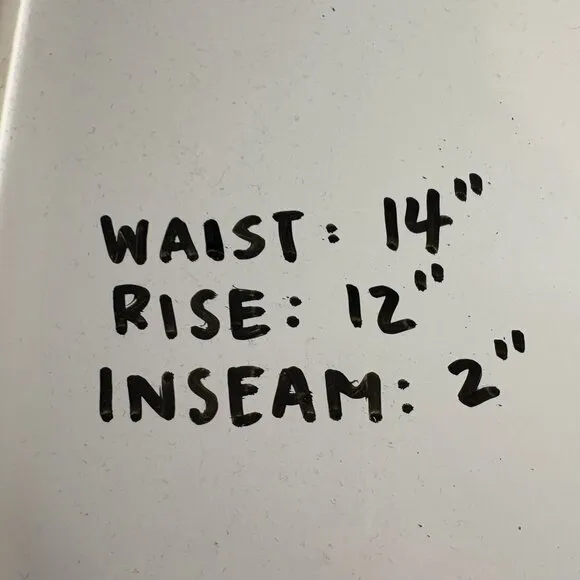 WAIST: 14"
RISE: 12"
INSEAM: 2"